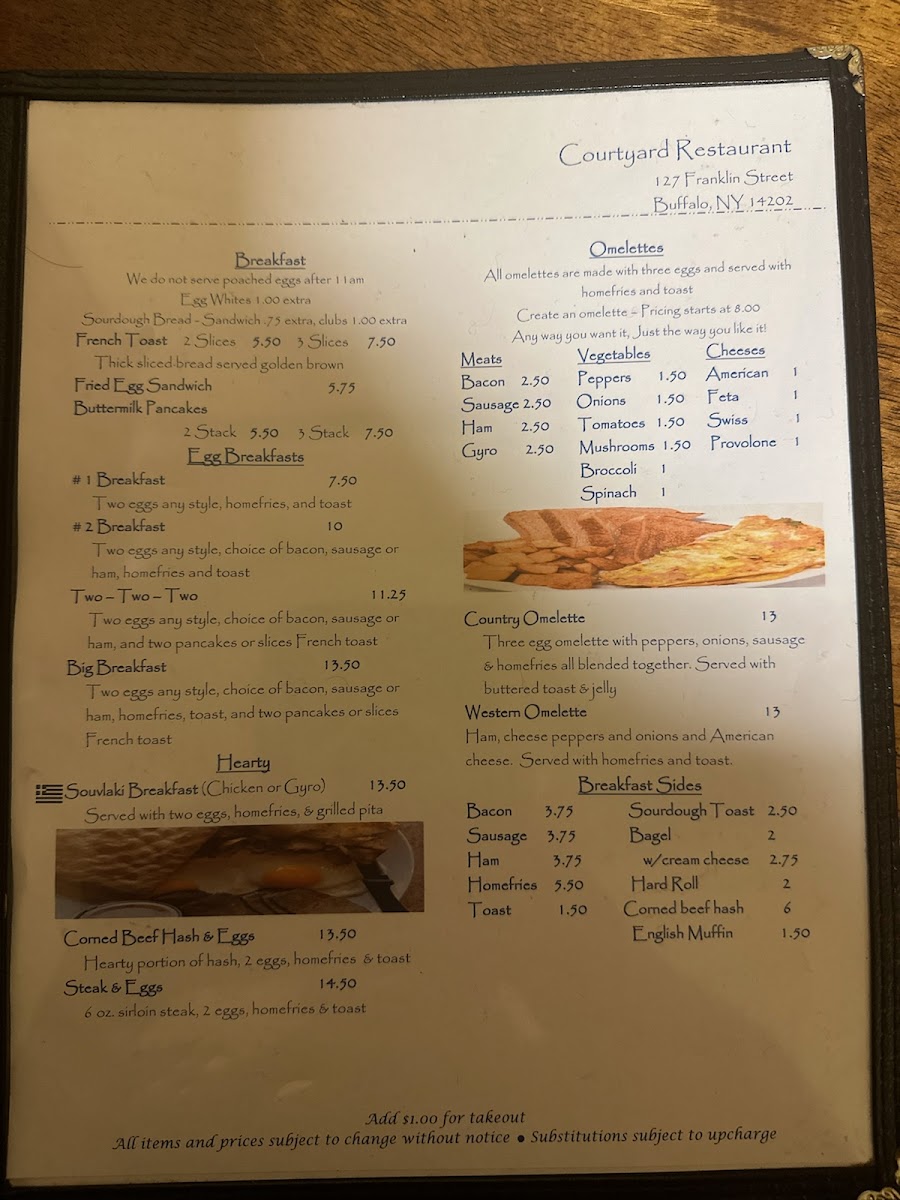 Courtyard Restaurant
127 Franklin Street
Buffalo, NY 14202
Breakfast
We do not serve poached eggs after 11am
Egg Whites 1.00 extra
Sourdough Bread - Sandwich .75 extra, clubs 1.00 extra
French Toast 2 Slices 5.50 3 Slices 7.50
Thick sliced-bread served golden brown
Fried Egg Sandwich 5.75
Buttermilk Pancakes
2 Stack 5.50 3 Stack 7.50
Egg Breakfasts
# 1 Breakfast 7.50
Two eggs any style, homefries, and toast
# 2 Breakfast 10
Two eggs any style, choice of bacon, sausage or
ham, homefries and toast
Two – Two – Two 11.25
Two eggs any style, choice of bacon, sausage or
ham, and two pancakes or slices French toast
Big Breakfast 13.50
Two eggs any style, choice of bacon, sausage or
ham, homefries, toast, and two pancakes or slices
French toast
Hearty
Souvlaki Breakfast (Chicken or Gyro) 13.50
Served with two eggs, homefries, & grilled pita
Corned Beef Hash & Eggs 13.50
Hearty portion of hash, 2 eggs, homefries & toast
Steak & Eggs 14.50
6 oz. sirloin steak, 2 eggs, homefries & toast
Omelettes
All omelettes are made with three eggs and served with
homefries and toast
Create an omelette – Pricing starts at 8.00
Any way you want it, Just the way you like it!
Meats Vegetables Cheeses
Bacon 2.50 Peppers 1.50 American 1
Sausage 2.50 Onions 1.50 Feta 1
Ham 2.50 Tomatoes 1.50 Swiss 1
Gyro 2.50 Mushrooms 1.50 Provolone 1
Broccoli 1
Spinach 1
Country Omelette 13
Three egg omelette with peppers, onions, sausage
& homefries all blended together. Served with
buttered toast & jelly
Western Omelette 13
Ham, cheese peppers and onions and American
cheese. Served with homefries and toast.
Breakfast Sides
Bacon 3.75 Sourdough Toast 2.50
Sausage 3.75 Bagel 2
Ham 3.75 w/cream cheese 2.75
Homefries 5.50 Hard Roll 2
Toast 1.50 Corned beef hash 6
English Muffin 1.50
Add $1.00 for takeout
All items and prices subject to change without notice ● Substitutions subject to upcharge